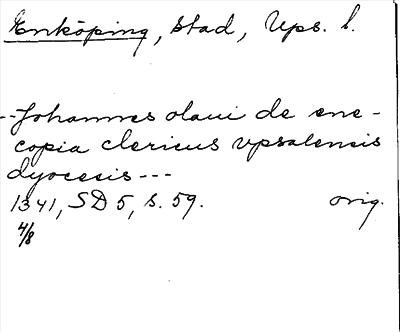 Enköping, stad, Ups. l.
--Johannes olaui de ene-
copia clericus vpsalensis
dyocesis---
1341, SD 5, s. 59. orig.
4/8